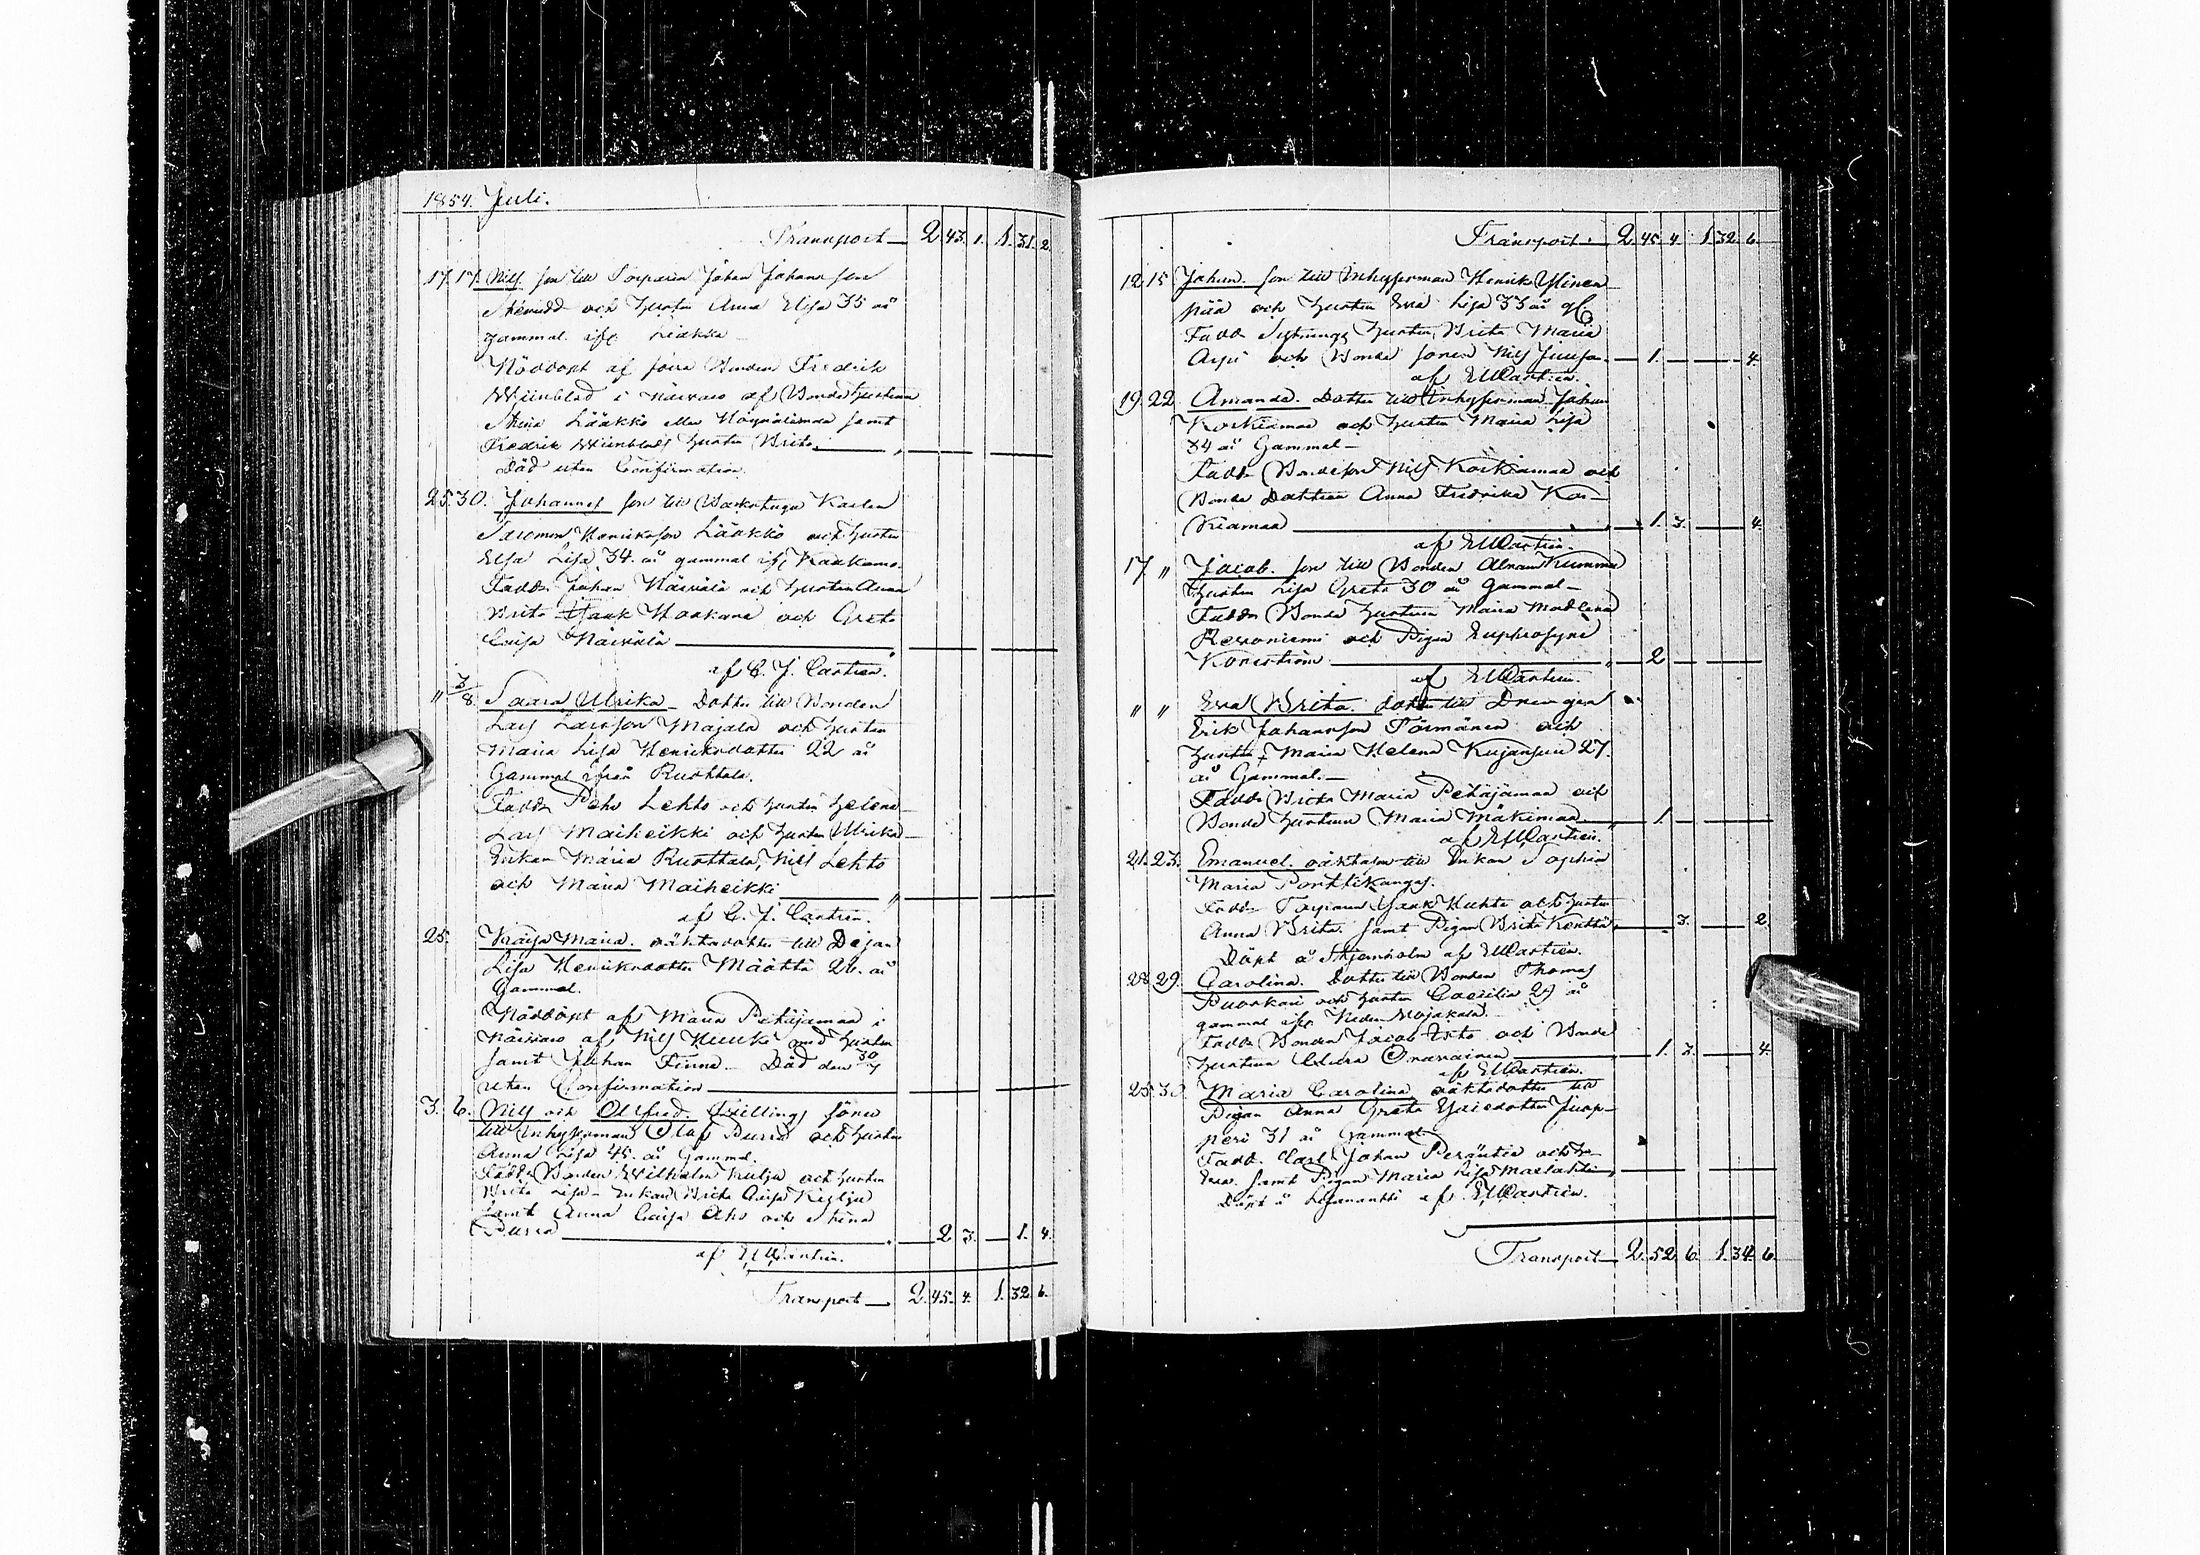 1854. Juli.
Transport 2. 43. 1. 1. 31. 2.
17. 17. Nils son till Torparen Johan Johans son
och hustru Anna Elsa 35 år
gammal ifr. Liakka
Nöddöpt af förra Bonden Fredrik
Wiinblad i af Bonde hustrun
Stina Lääkkö eller samt
Fredrik Wiinblads hustru Brita
Död utan Confirmation.
25. 30. Johannes son till Karlen
Salomon Henriksson Lääkkö och hustru
Elsa Lisa 34. år gammal ifr. Kaakamo.
Fadd. Johan och hustru Anna
Brita Isaak Haakana och Greta
Caisa
af C. J. Cantzen.
" 3/8. Saara Ulrika. Dotter till Bonden
Lars Larsson Majala och hustru
Maria Lisa Henriksdotter 22 år
Gammal ifrån Ruottala.
Fadd. Petr Lehto och hustru Helena
Lars Maiheikki och hustru Ulrika
Enkan Maria Ruottala, Nils Lehto
och Maria Maiheikki
af C. J. Cantzen.
25. Kaisa Maria. oäkta dotter till Pigan
Lisa Henriksdotter Määttä 26. år
Gammal.
Nöddöpt af Maria Petäjämaa i
af Nils med hustru
samt Johan Finne. Död den 30/7
utan Confirmation
3. 6. Nils och Alfred. Tvillings söner
till Inhysesman Olof Purra och hustru
Anna Lisa 45. år Gammal.
Fadd. Bonden Wilhelm och hustru
Brita Lisa. Enkan Brita Caisa
samt Anna Caisa Aho och Stina
Purra 2. 3. 1. 4.
af
Transport 2. 45. 4. 1. 32. 6.
Transport. 2. 45. 4. 1. 32. 6.
12. 15. Johan. son till Inhysesman Henrik Ylinen
pää och hustru Eva Lisa 33 år gl.
Fadd. hustrun Brita Maria
och Bonde sonen Nils Juuso 1. 4.
af
19. 22. Amanda. Dotter till Inhysesman Johan
Korkiamaa och hustru Maria Lisa
34 år Gammal
Fadd. Bondeson Nils Korkiamaa och
Bonde Dottren Anna Fredrika Kor-
kiamaa 1. 3. 4.
af
17. " Jacob. son till Bonden Abram Kumma
hustru Lisa Greta 30 år Gammal
Fadd. Bonde hustrun Maria Madlena
och Pigan Euphrosyne
2
af
" " Eva Brita. dotter till Drengen
Erik Johansson Törmänen och
hustru Maria Helena Kujansuu 27.
år Gammal.
Fadd. Brita Maria Petäjämaa och
Bonde hustrun Maria Mäkimaa 1.
af
21. 23. Emanuel. oäkta son till Enkan Sophia
Maria Portti Kangas.
Fadd. Torparen Isaak Huhta och hustru
Anna Brita. samt Pigan Brita Kenttä 3. 2.
Döpt å af
28. 29. Carolina. Dotter till Bonden Thomas
och hustru Caecilia 29 år
gammal ifr. Neder Vojakala.
Fadd. Bonden Jacob och Bonde
hustrun Clara 1. 3. 4.
af
25. 30. Maria Carolina oäkta dotter till
Pigan Anna Greta
31 år Gammal.
Fadd. Carl Johan och h.
Eva. samt Pigan Maria Lisa
Döpt å af
Transport 2. 52. 6. 1. 34. 6.